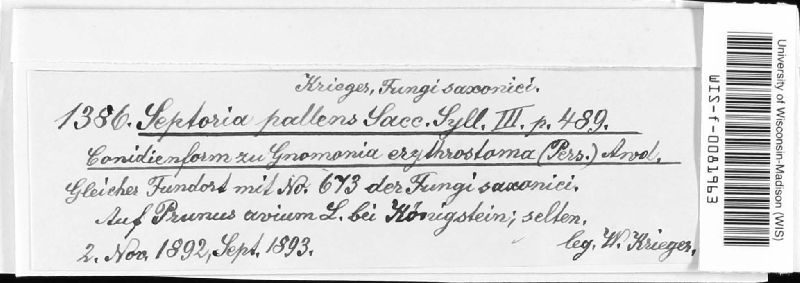 Krieger, Fungi saxonici.
1386. Septoria pallens Sacc. Syll. III. p. 489.
Conidienform zu Gnomonia erythrostoma (Pers.) Awd.
Gleicher Fundort mit No. 673 der Fungi saxonici.
Auf Prunus avium L. bei Königstein; selten.
2. Nov. 1892, Sept. 1893. leg. W. Krieger.
University of Wisconsin-Madison (WIS)
WIS-f-0081963